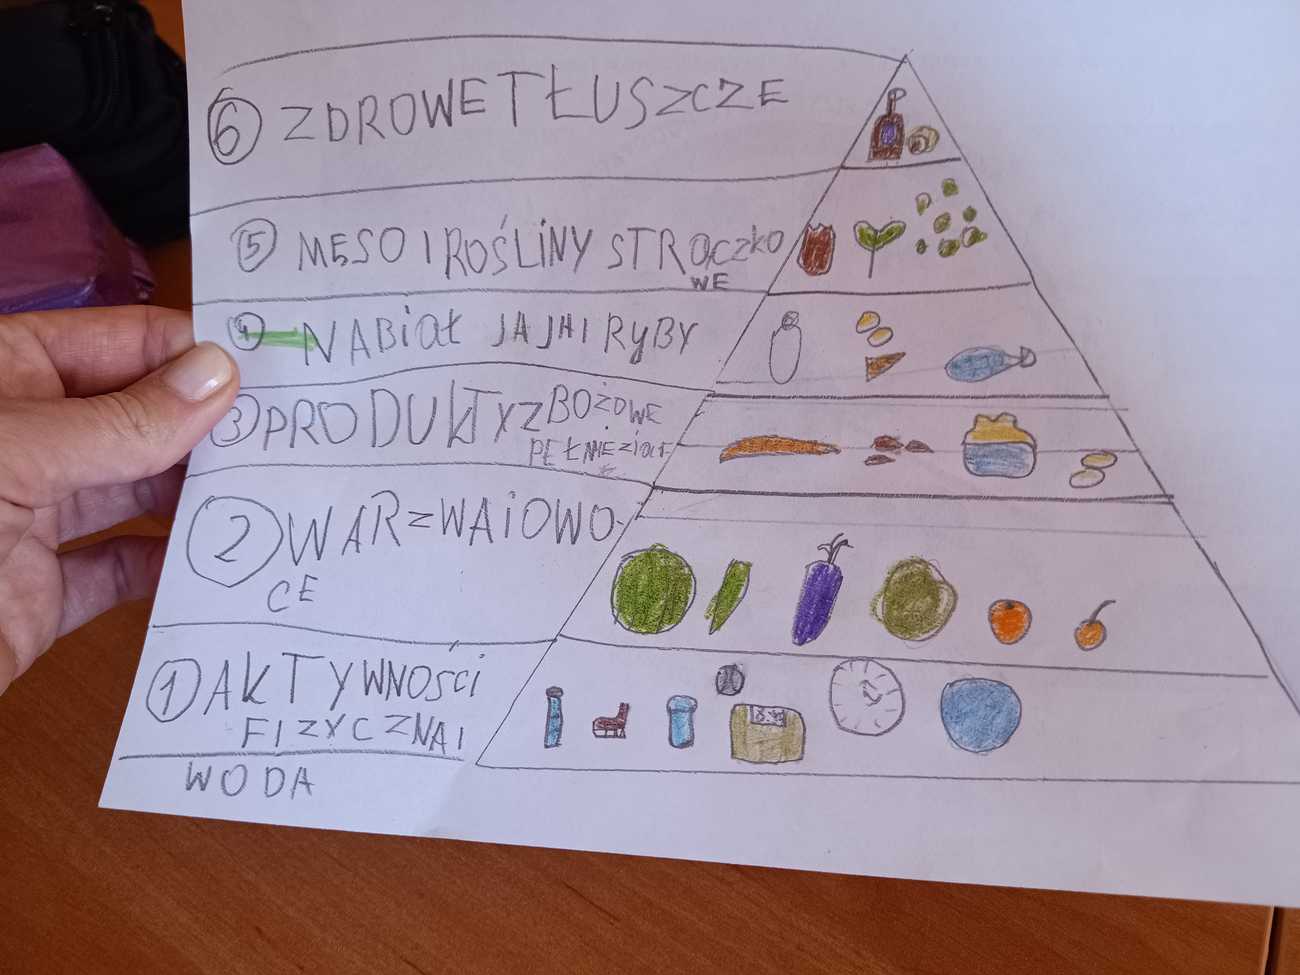 6 ZDROWE TŁUSZCZE
5 MĘSO I ROŚLINY STRĄCZKO
WE
4 NABIAŁ JAJA I RYBY
3 PRODUKTY ZBOŻOWE
PEŁNIEZIAR-
2 WARZWA I OWO-
CE
1 AKTYWNOŚCI
FIZYCZNA I
WODA